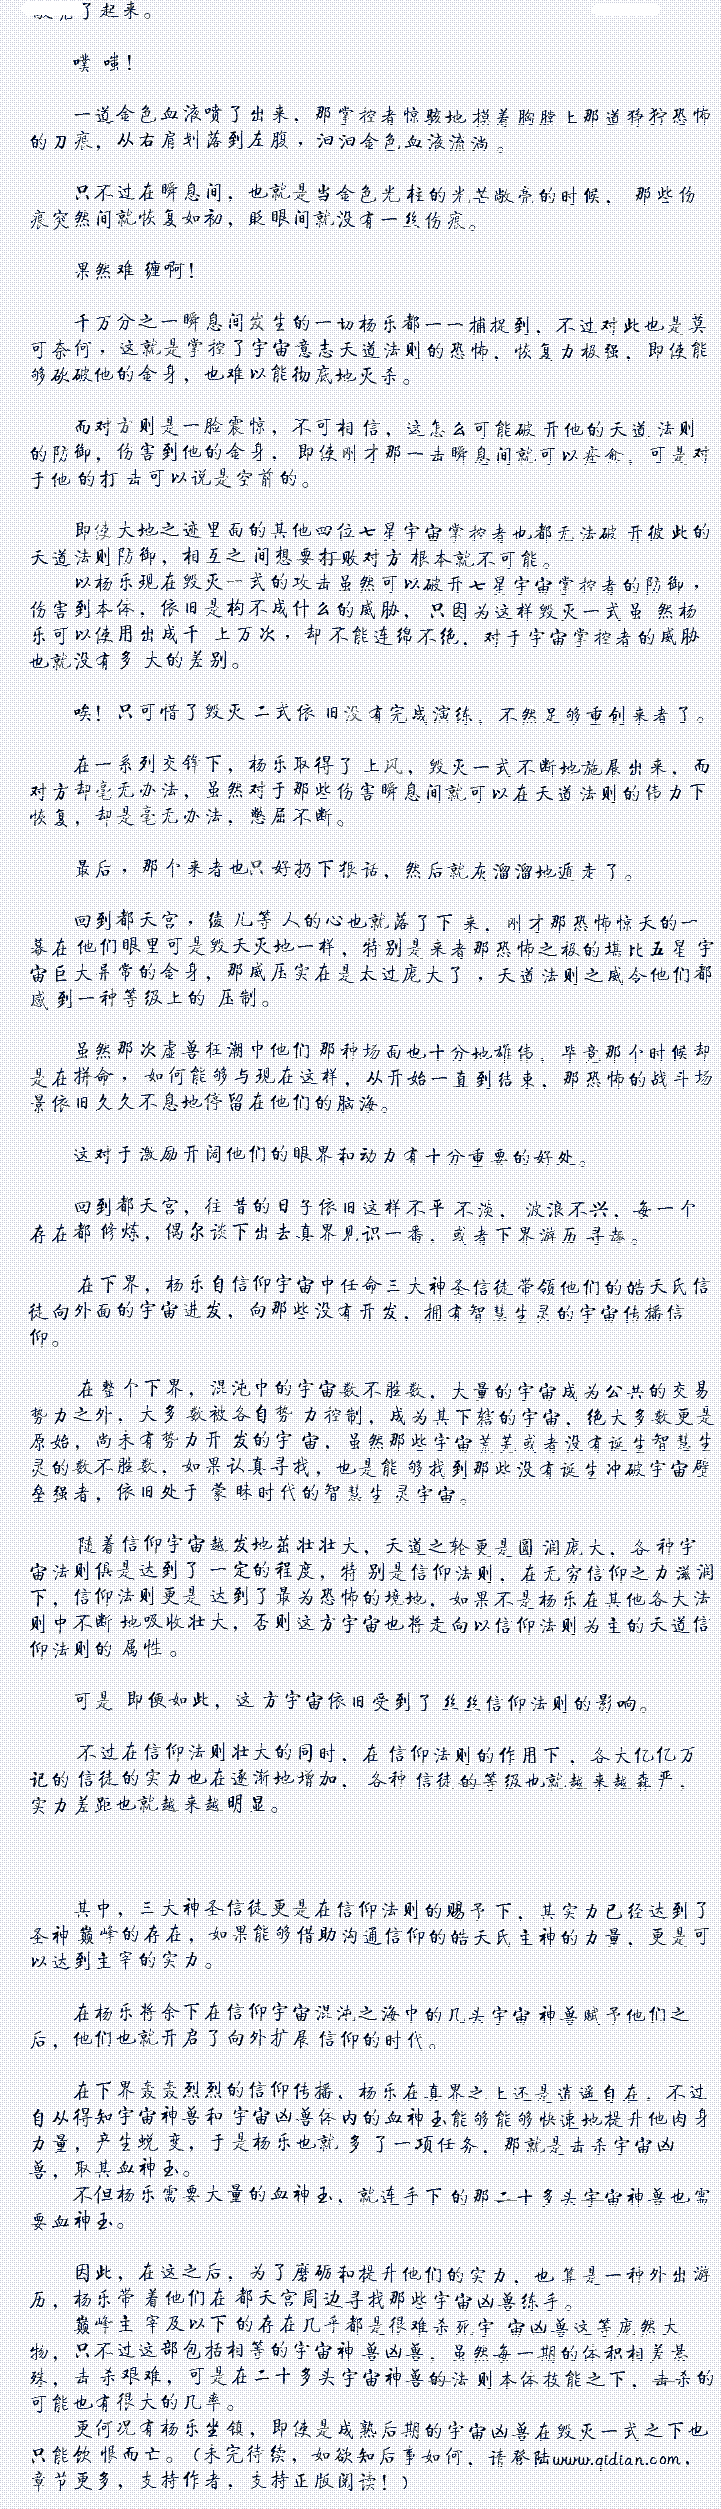 了起来。
噗 嗤！
一道金色血液喷了出来，那掌控者惊骇地摸着胸膛上那道狰狞恐怖
的刀痕，从右肩划落到左腹，汩汩金色血液流淌。
只不过在瞬息间，也就是当金色光柱的光芒敞亮的时候， 那些伤
痕突然间就恢复如初，眨眼间就没有一丝伤痕。
果然难 缠啊！
千万分之一瞬息间发生的一切杨乐都一一捕捉到，不过对此也是莫
可奈何，这就是掌控了宇宙意志天道法则的恐怖，恢复力极强，即使能
够砍破他的金身，也难以能彻底地灭杀。
而对方则是一脸震惊，不可相信，这怎么可能破 开他的天道 法则
的防御，伤害到他的金身， 即使刚才那一击瞬息间就可以痊愈，可是对
于他 的打 击可以说是空前的。
即使大地之迹里面的其他四位七星宇宙掌控者也都无法破 开彼此的
天道法则防御，相互之 间想要打败对方 根本就不可能。
以杨乐现在毁灭一式的攻击虽然可以破开七星宇宙掌控者的防御，
伤害到本体，依旧是构不成什么的威胁， 只因为这样毁灭一式虽 然杨
乐可以使用出成千 上万次，却 不能连绵不绝，对于宇宙掌控者的威胁
也就没有多 大的差别。
唉！只可惜了毁灭 二式依 旧没有完成演练，不然足够重创来者了。
在一系列交锋下，杨乐取得了 上风，毁灭一式不断地施展出来，而
对方却毫无办法，虽然对于那些伤害瞬息间就可以在天道法则的伟力下
恢复，却是毫无办法，憋屈不断。
最后，那个来者也只 好扔下狠话，然后就灰溜溜地遁 走了。
回到都天宫，绫 儿等 人的心也就落了下 来，刚才那恐怖惊天的一
幕在 他们眼里可是毁天灭地一样，特别是来者那恐怖之极的堪比五星 宇
宙巨大异常的金身，那威压实在是太过庞大了 ，天道 法则之威令他们都
感 到一种等级上的 压制。
虽然那次虚兽狂潮中他们 那种场面也十分地雄伟，毕竟那个时候却
是在拼命， 如何能够与现在这样，从开始一直到结束，那恐怖的战斗场
景依旧久久不息地停留在他们的脑海。
这对于 激励开阔他们的眼界和动力有十分重要的好处。
回到都天宫，往 昔的日子依旧这样不平 不淡， 波浪不兴，每一个
存在都 修炼，偶尔谈下出去真界见识一番，或者下界游历 寻趣。
在下界，杨乐自信仰宇宙中任命三大神圣信徒带领他们的皓天氏信
徒向外面的宇宙进发，向那些没有开发，拥有智慧生灵的宇宙传播信
仰。
在整个下界，混沌中的宇宙数不胜数，大量的宇宙成为公共的交易
势力之外，大多 数被各自势 力控制，成为其下辖的宇宙，绝大多数更是
原始，尚未有势力开 发的宇 宙，虽然那些宇宙荒芜或者没有诞生智慧生
灵的数不胜数，如果认真寻找，也是能 够找到那些没有诞生冲破宇宙壁
垒强者，依旧处于 蒙 昧时代的智慧生 灵宇宙。
随着信仰宇宙越发地茁壮壮大，天道之轮更是圆 润庞大，各 种宇
宙法则俱是达到了 一定的程度，特 别是信仰法则，在无穷信仰之力滋润
下，信仰法则更是 达到了最为恐怖的境地，如果不是杨乐在其他各大法
则中不断 地吸收壮大，否则这方宇宙也将走向以信仰法则为主的天道信
仰法则的 属性。
可是 即便如此，这 方宇宙依旧受到了 丝丝信仰法则的影响。
不过在信仰法则壮大的同时，在 信仰法则的作用下，各大亿亿万
记的 信徒的实力也在逐渐地增加， 各种 信徒的等级也就越来越森严，
实力差距也就越来越明显。
其中，三大神圣信徒更是在信仰法则的赐予下，其实力已经达到了
圣神 巅峰的存在，如果能够借助沟通信仰的皓天氏主神的力量，更是可
以达到主宰的实力。
在杨乐将余下在信仰宇宙混沌之海中的几头宇宙 神兽赋予他们之
后，他们也就开启了向外扩展 信仰的时代。
在下界轰轰烈烈的信仰传播，杨乐在真界之上还是逍遥自在，不过
自从得知宇宙神兽和 宇宙凶兽体内的血神玉能够能够快速地提升他肉身
力量，产生蜕 变，于是杨乐也就 多 了一项任务，那就是击杀宇宙凶
兽，取其血神玉。
不但杨乐需要大量的血神玉，就连手下 的那二十多头宇宙神兽也需
要血神玉。
因此，在这之后，为了磨砺和提升他们的实力，也 算是一种外出游
历，杨乐带 着他们在 都天宫周边寻找那些宇宙凶兽练手。
巅峰主 宰及以下的存在几乎都是很难杀死宇 宙凶兽这等庞然大
物，只不过这部包括相等的宇宙神 兽凶兽，虽然每一期的体积相差悬
殊，击 杀艰难，可是在二十多头宇宙神兽的法 则本体技能之下，击杀的
可能也有很大的几率。
更何况有杨乐坐镇，即使是成熟后期的宇宙凶兽在毁灭一式之下也
只能饮 恨而亡。（未完待续，如欲知后事如何，请登陆www.qidian.com，
章节更多，支持作者，支持正版阅读！）